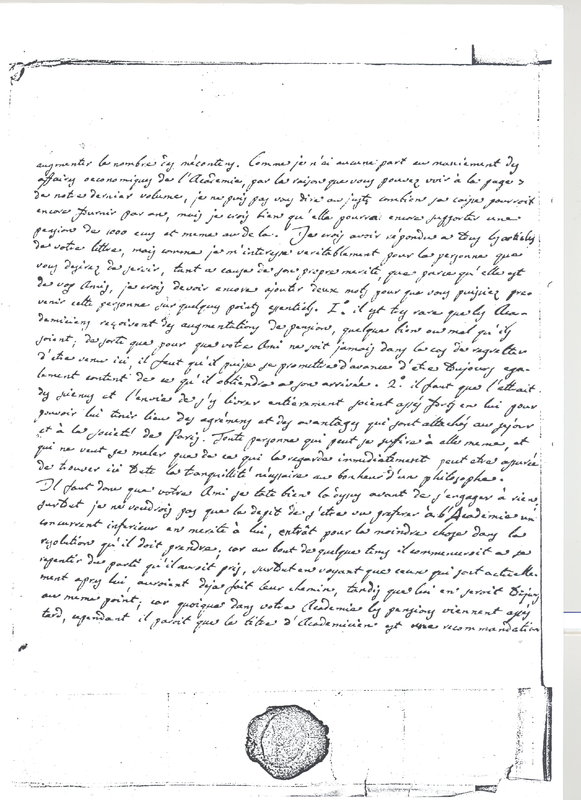 augmenter le nombre des mécontens. Comme je n'ai aucune part au maniement des
affaires oeconomiques de l'Académie, par la raison que vous pouvez voir à la page 7
de notre dernier volume, je ne puis pas vous dire au juste combien sa caisse pourroit
encore fournir par an, mais je crois bien qu'elle pourra encore supporter une
pension de 1000 ecus et meme au de la. Je crois avoir répondu a tous les articles
de votre lettre, mais comme je m'interesse veritablement pour la personne que
vous desirez de servir, tant a cause de son propre merite, que parce qu'elle est
de vos Amis, je crois devoir encore ajouter deux mots pour que vous puissiez pre
venir cette personne sur quelques points essentiels. 1°. il est tres rare que les Aca-
demiciens reçoivent des augmentations de pension, quelque bien ou mal qu'ils
soient; de sorte que pour que votre Ami ne soit jamais dans le cas de regretter
d'etre venu ici, il faut qu'il puisse se promettre d'avance d'etre toujours ega-
lement content de ce qu'il obtiendra a son arrivée. 2°. il faut que l'attrait
des sciences et l'envie de s'y livrer entierement soient assés forts en lui pour
pouvoir lui tenir lieu des agrémens et des avantages qui sont attachés au sejour
et à la societé de Paris. Toute personne qui peut se suffire à elle meme, et
qui ne veut se meler que de ce qui la regarde immediatement peut etre assurée
de trouver ici toute la tranquillité nécessaire au bonheur d'un philosophe.
Il faut donc que votre Ami se tate bien la dessus avant de s'engager a rien;
surtout je ne voudrois pas que le depit de s'etre vu preferer à l'Académie un
concurrent inferieur en merite à lui, entrât pour la moindre chose dans la
resolution qu'il doit prendre, car au bout de quelque tems il commenceroit a se
repentir du parti qu'il auroit pris, surtout en voyant que ceux qui sont actuelle-
ment après lui, auroient deja fait leur chemin, tandis que lui en seroit toujours
au meme point; car quoique dans votre Academie les pensions viennent assés
tard, cependant il paroit que le titre d'Academicien est une recommandation